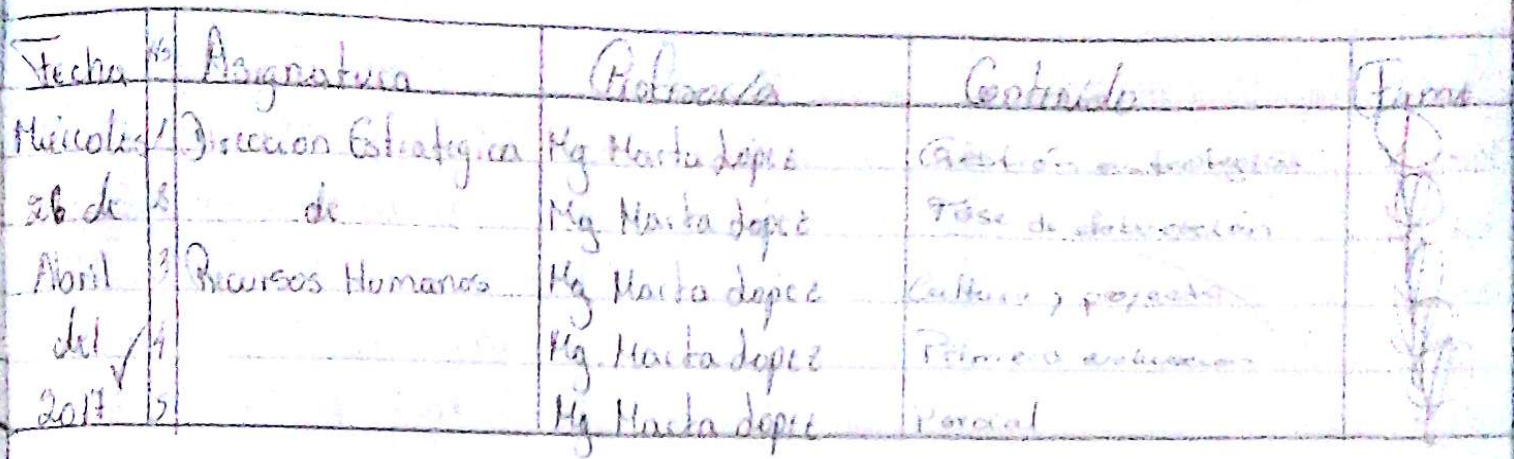 Fecha Nº Asignatura Profesor/a Contenido Firma
Miércoles 1 Dirección Estrategica Mg Marta Lopez Gestión estrategica
26 de 2 de Mg Marta Lopez Fase de
Abril 3 Recursos Humanos Mg Marta Lopez Cultura y proyecto
del 4 Mg. Marta Lopez Primera evaluacion
2017 5 Mg Marta Lopez Parcial